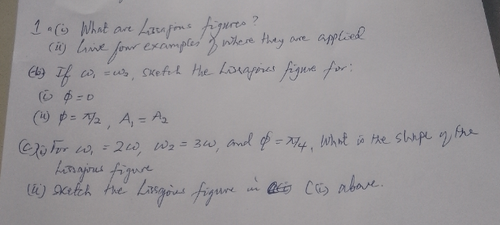 1 a(i) What are Lissajous figures?
(ii) Give four examples of where they are applied
(b) If ω₁ = ω₂, sketch the Lissajous figure for:
(i) ϕ = 0
(ii) ϕ = π/2, A₁ = A₂
(c)(i) For ω₁ = 2ω, ω₂ = 3ω, and ϕ = π/4, What is the shape of the
Lissajous figure
(ii) Sketch the Lissajous figure in C(i) above.